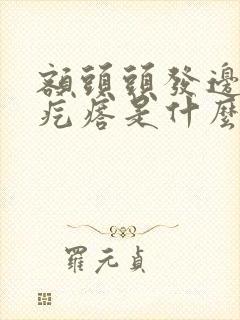 額頭頭發邊
疙瘩是什麼
羅元貞